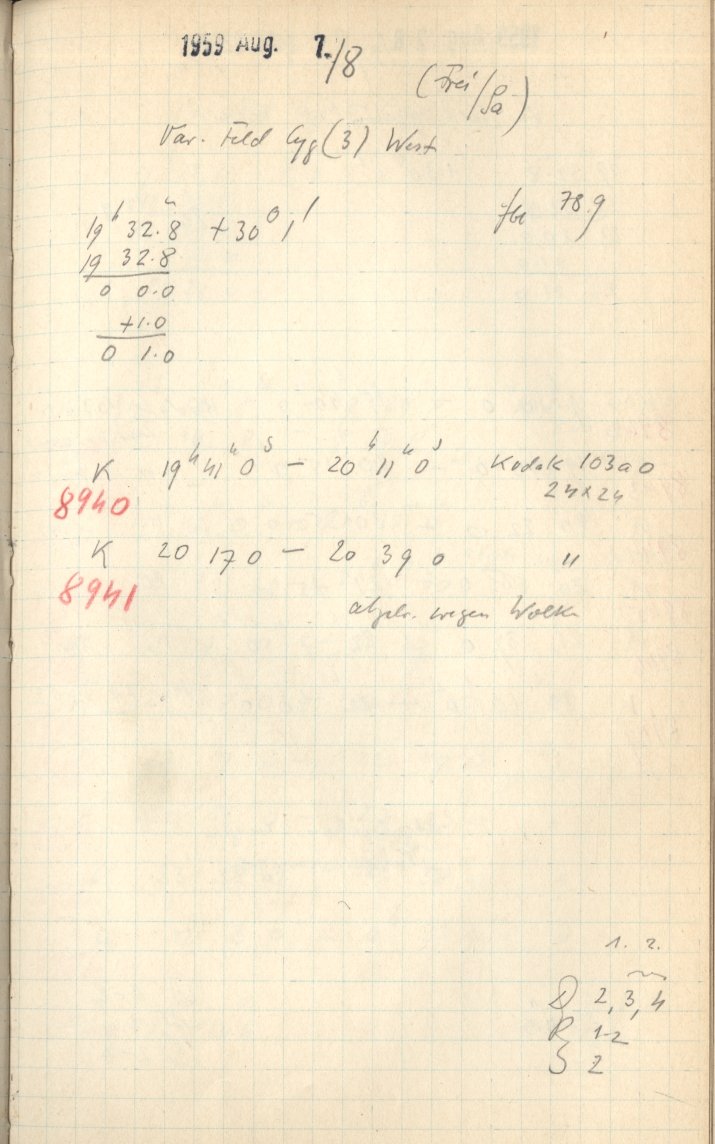 1959 Aug. 7./8
(Frei/Sa)
Var. Feld Cyg (3) West
19h 32.8m +30° 1'
78.9
19 32.8
0 0.0
+1.0
0 1.0
K 19h 41m 0s — 20h 11m 0s Kodak 103a0
8940
24x24
K 20 17 0 — 20 39 0 "
8941
abgebr. wegen Wolken
1. 2.
D 2, 3, 4
R 1-2
S 2